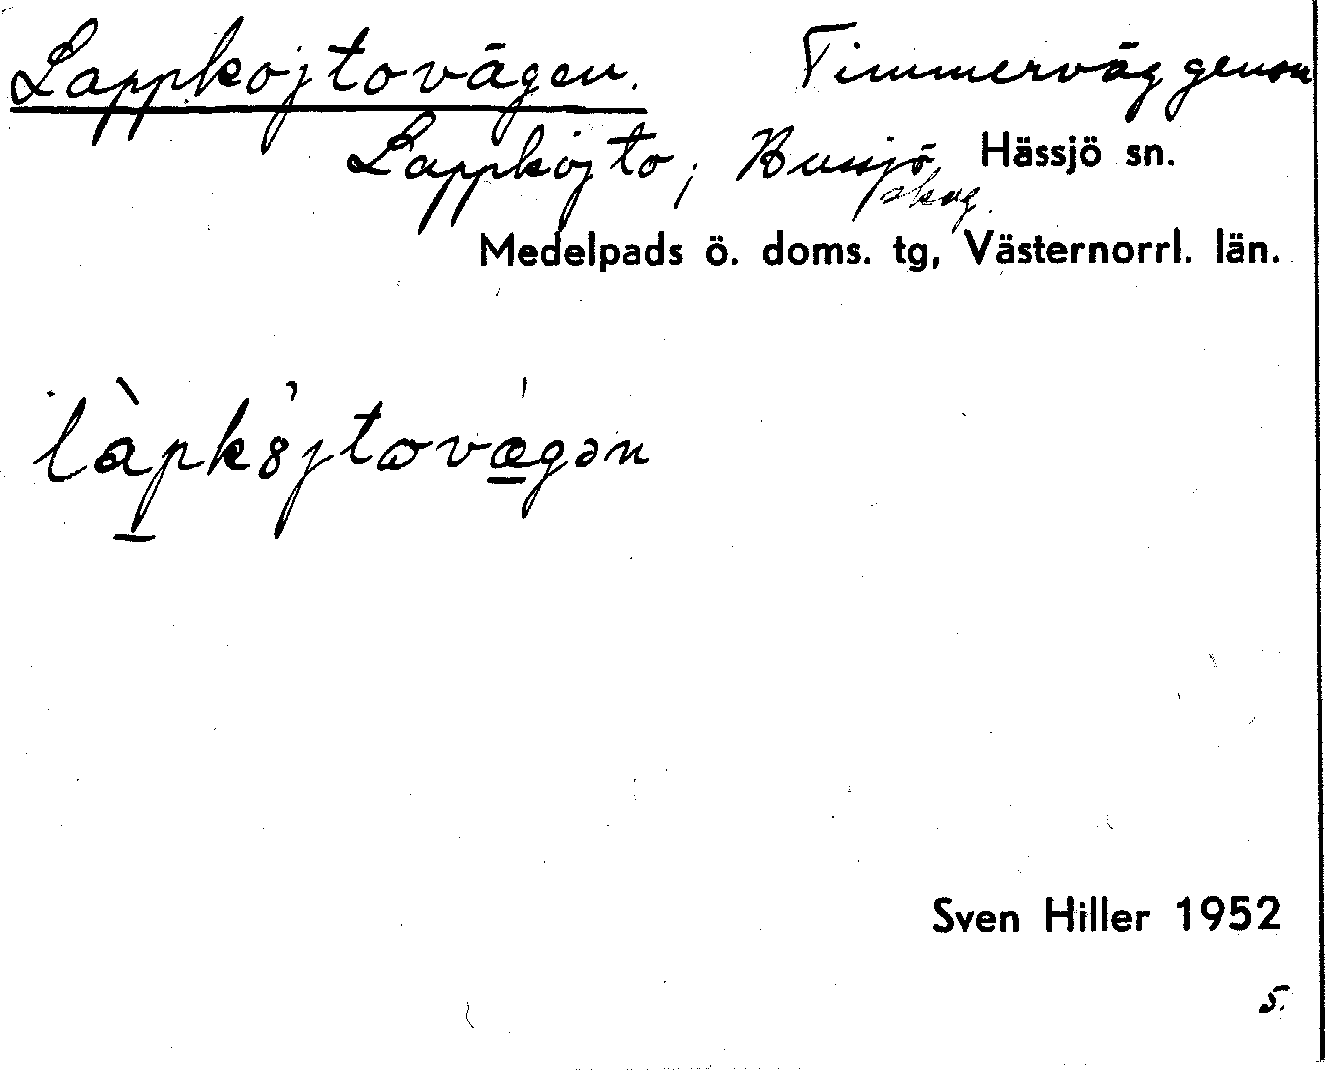 Lappkojtovägen. Timmerväg genom
Lappkojto, Bussjö Hässjö sn.
skog.
Medelpads ö. doms. tg, Västernorrl. län.
làpk8jtovægən
Sven Hiller 1952
5.